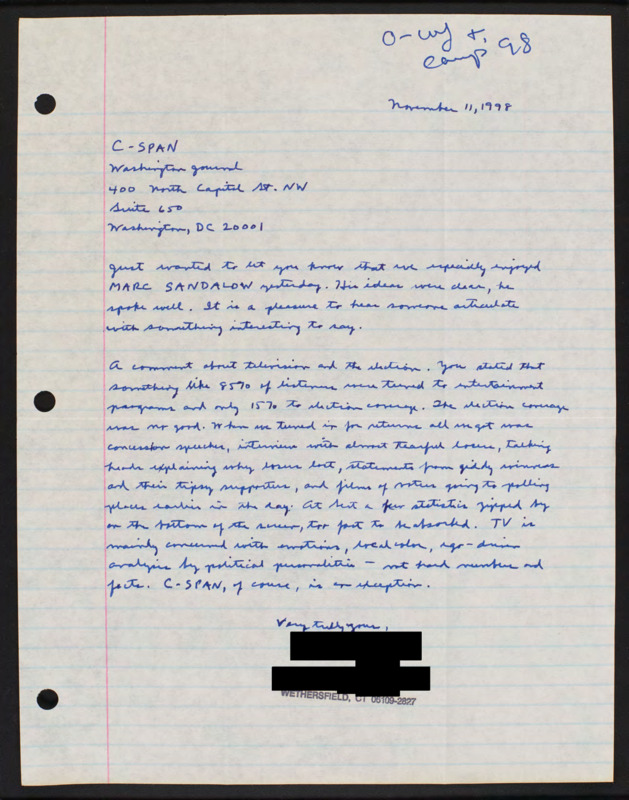 O-wf &.
camp 98
November 11, 1998
C-SPAN
Washington Journal
400 North Capitol St. NW
Suite 650
Washington, DC 20001
Just wanted to let you know that we especially enjoyed
MARC SANDALOW yesterday. His ideas were clear, he
spoke well. It is a pleasure to hear someone articulate
with something interesting to say.
A comment about television and the election. You stated that
something like 85% of listeners were tuned to entertainment
programs and only 15% to election coverage. The election coverage
was no good. When we tuned in for returns all we got was
concession speeches, interviews with almost tearful losers, talking
heads explaining why losers lost, statements from giddy winners
and their tipsy supporters, and films of voters going to polling
places earlier in the day. At best a few statistics zipped by
on the bottom of the screen, too fast to be absorbed. TV is
mainly concerned with emotions, local color, ego-driven
analysis by political personalities — not hard numbers and
facts. C-SPAN, of course, is an exception.
Very truly yours,
WETHERSFIELD, CT 06109-2827